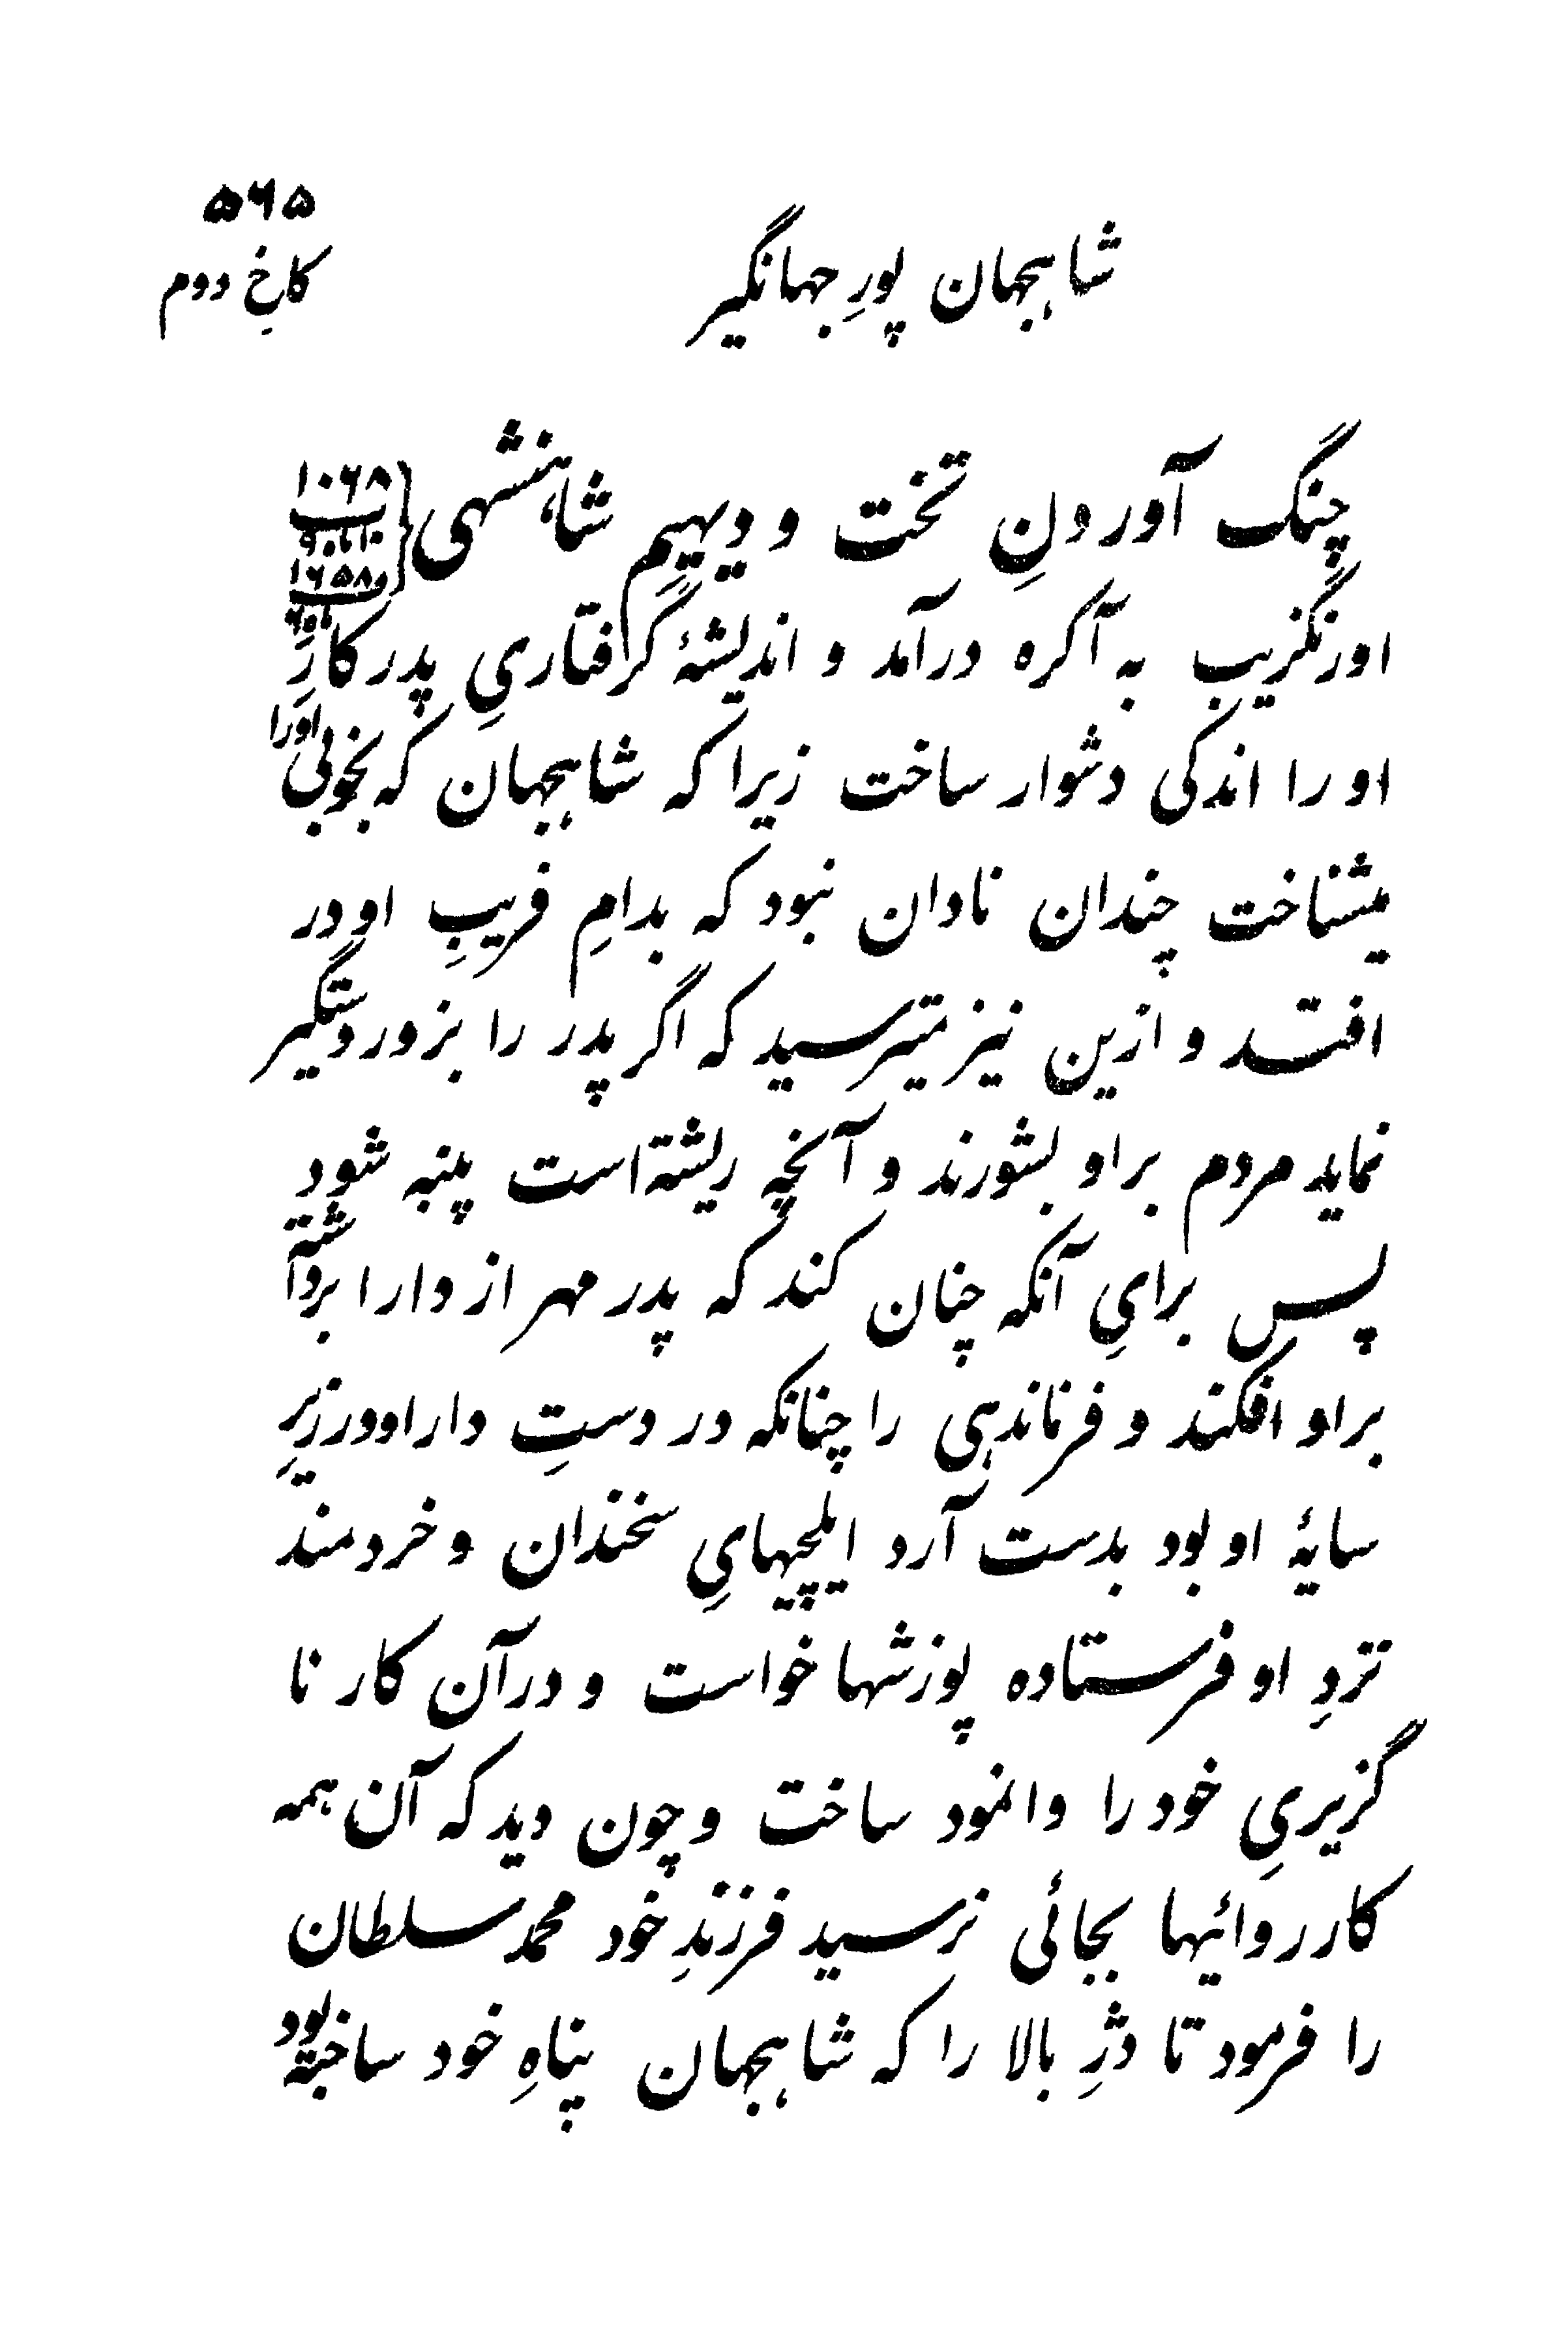 ۵۶۵
شاهجهان پورِ جهانگیر
کاخِ دوم
چنگ آوردنِ تخت و دیهیمِ شاهنشهی {۱۰۶۸ ۱۶۵۸
اورنگزیب به آگره درآمد و اندیشهٔ گرفتاریِ پدر کارِ
او را اندکی دشوار ساخت زیرا که شاهجهان که بخوبی اورا
میشناخت چندان نادان نبود که بدامِ فریبِ او در
افتد و ازین نیز میترسید که اگر پدر را بزور دستگیر
نماید مردم بر او بشورند و آنچه ریشته است پنبه شود
پس برایِ آنکه چنان کند که پدر مهر از دارا برداشته
بر او افکند و فرماندهی را چنانکه در دستِ دارا و در زیرِ
سایهٔ او بود بدست آرد ایلچیهایِ سخندان و خردمند
نزدِ او فرستاده پوزشها خواست و در آن کار نا
گزیریِ خود را وانمود ساخت و چون دید که آن همه
کارروائیها بجائی نرسید فرزندِ خود محمد سلطان
را فرمود تا دژِ بالا را که شاهجهان پناهِ خود ساخته بود